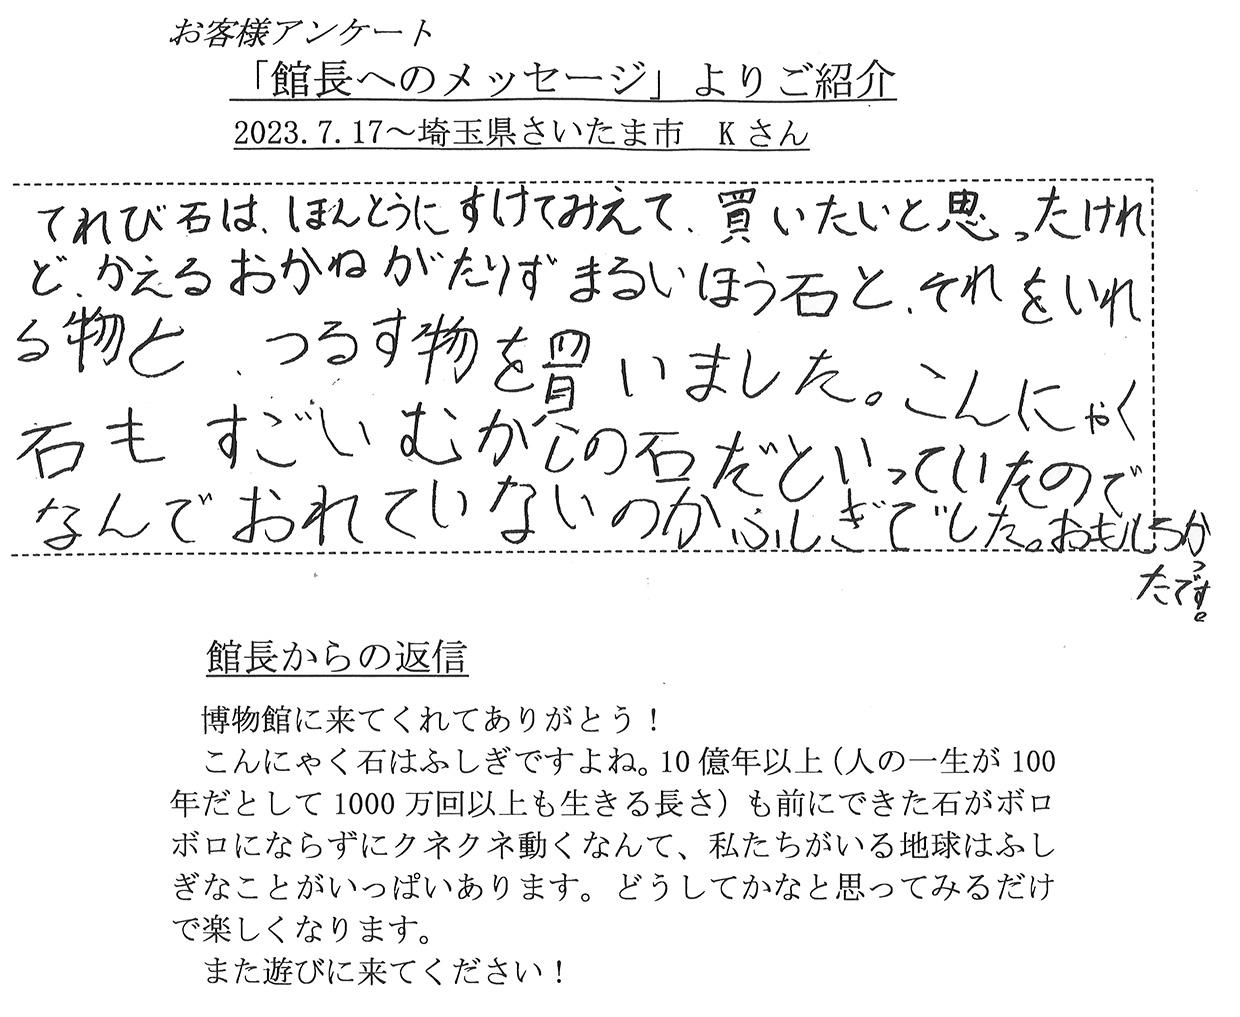 お客様アンケート
「館長へのメッセージ」よりご紹介
2023.7.17～埼玉県さいたま市　Kさん
てれび石は、ほんとうにすけてみえて、買いたいと思ったけれ
ど、かえるおかねがたりずまるいほう石と、それをいれ
る物と、つるす物を買いました。こんにゃく
石もすごいむかしの石だといっていたので
なんでおれていないのかふしぎでした。おもしろかっ
たです。
館長からの返信
博物館に来てくれてありがとう！
こんにゃく石はふしぎですよね。10億年以上（人の一生が100
年だとして1000万回以上も生きる長さ）も前にできた石がボロ
ボロにならずにクネクネ動くなんて、私たちがいる地球はふし
ぎなことがいっぱいあります。どうしてかなと思ってみるだけ
で楽しくなります。
また遊びに来てください！